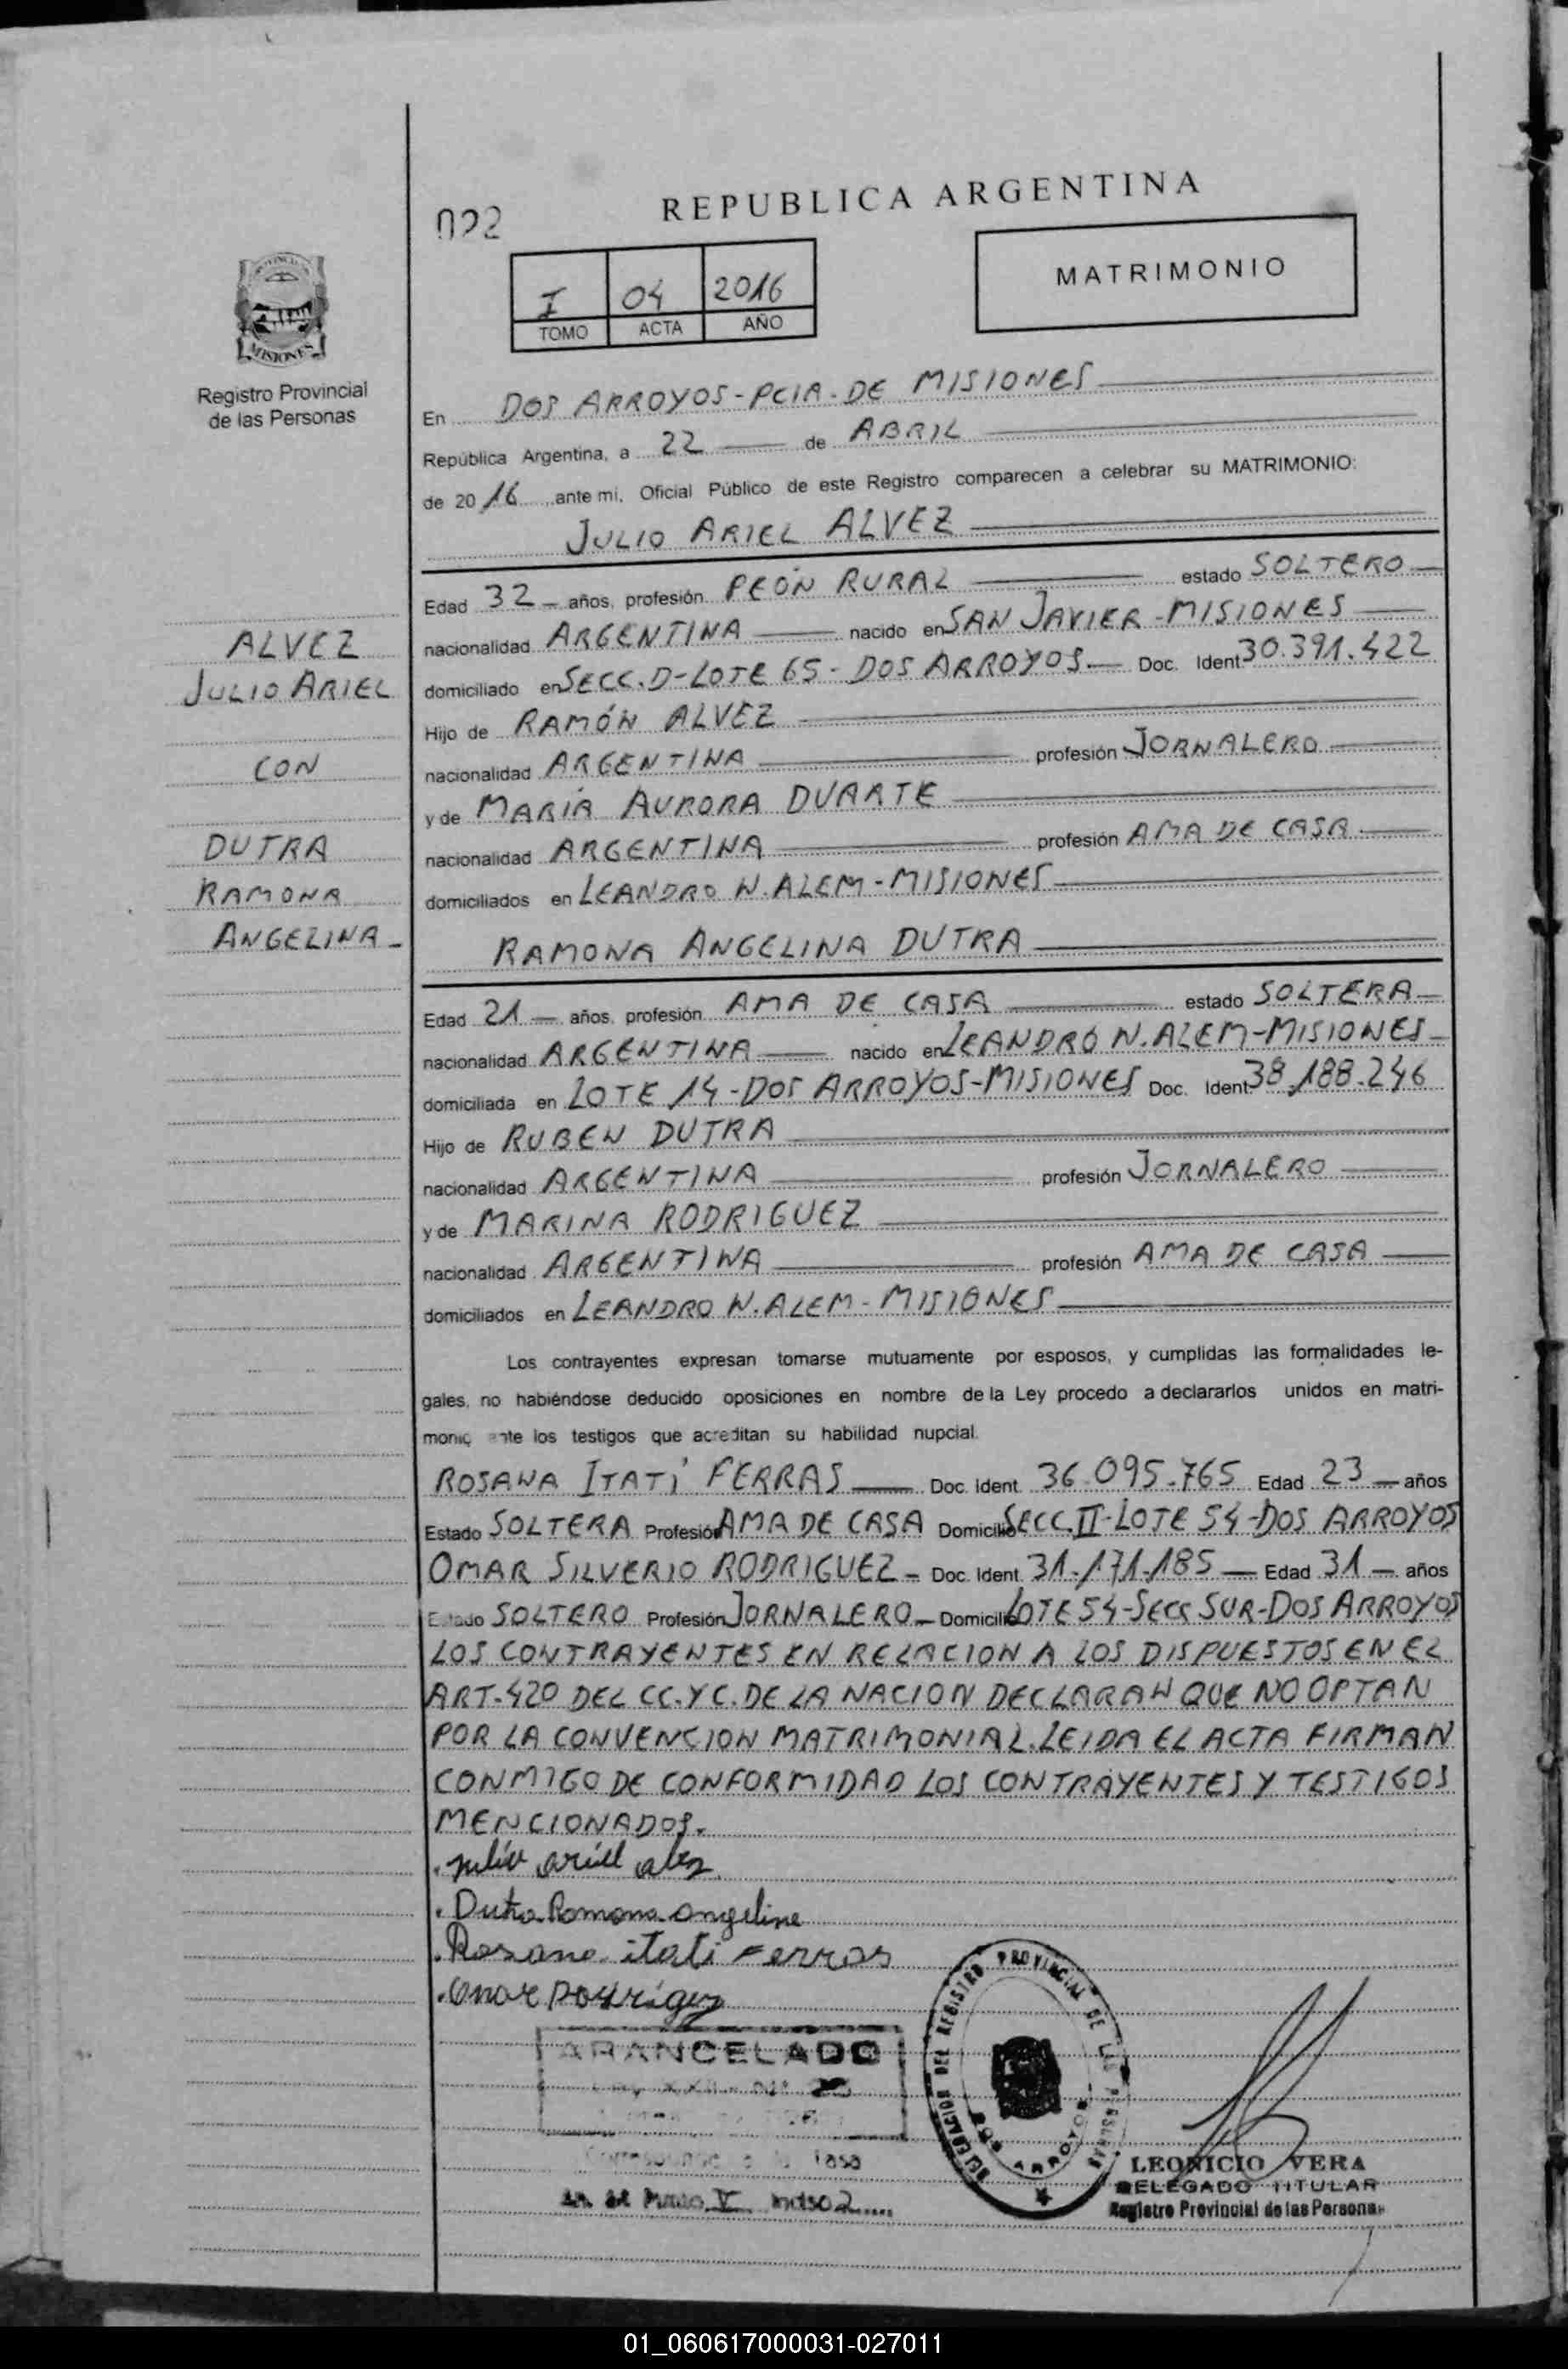 REPUBLICA ARGENTINA
022
MATRIMONIO
I 04 2016
TOMO ACTA AÑO
MISIONES
Registro Provincial
de las Personas
En DOS ARROYOS-PCIA.DE MISIONES
República Argentina, a 22 de ABRIL
de 2016 ante mi, Oficial Público de este Registro comparecen a celebrar su MATRIMONIO:
JULIO ARIEL ALVEZ
Edad 32 años, profesión PEÓN RURAL estado SOLTERO
nacionalidad ARGENTINA nacido en SAN JAVIER-MISIONES
domiciliado en SECC.D-LOTE 65-DOS ARROYOS Doc. Ident. 30.391.422
Hijo de RAMÓN ALVEZ
nacionalidad ARGENTINA profesión JORNALERO
y de MARÍA AURORA DUARTE
nacionalidad ARGENTINA profesión AMA DE CASA
domiciliados en LEANDRO N.ALEM-MISIONES
ALVEZ
JULIO ARIEL
CON
DUTRA
RAMONA
ANGELINA-
RAMONA ANGELINA DUTRA
Edad 21 años, profesión AMA DE CASA estado SOLTERA
nacionalidad ARGENTINA nacido en LEANDRO N.ALEM-MISIONES
domiciliada en LOTE 14-DOS ARROYOS-MISIONES Doc. Ident. 38.188.246
Hijo de RUBEN DUTRA
nacionalidad ARGENTINA profesión JORNALERO
y de MARINA RODRIGUEZ
nacionalidad ARGENTINA profesión AMA DE CASA
domiciliados en LEANDRO N.ALEM-MISIONES
Los contrayentes expresan tomarse mutuamente por esposos, y cumplidas las formalidades le-
gales, no habiéndose deducido oposiciones en nombre de la Ley procedo a declararlos unidos en matri-
monio ante los testigos que acreditan su habilidad nupcial.
ROSANA ITATÍ FERRAS Doc. Ident. 36.095.765 Edad 23 años
Estado SOLTERA Profesión AMA DE CASA Domicilio SECC.II-LOTE 54-DOS ARROYOS
OMAR SILVERIO RODRIGUEZ- Doc. Ident. 31.171.185 Edad 31 años
Estado SOLTERO Profesión JORNALERO Domicilio LOTE 54-SECC SUR-DOS ARROYOS
LOS CONTRAYENTES EN RELACION A LOS DISPUESTOS EN EL
ART.420 DEL CC.YC.DE LA NACION DECLARAN QUE NO OPTAN
POR LA CONVENCION MATRIMONIAL.LEIDA EL ACTA FIRMAN
CONMIGO DE CONFORMIDAD LOS CONTRAYENTES Y TESTIGOS
MENCIONADOS.
Julio ariel alvez
Dutra Ramona angelina
Rosana itati Ferras
Omar Rodriguez
ARANCELADO
Tasa
V Inciso 2
DELEGACION DEL REGISTRO PROVINCIAL DE LAS PERSONAS
DOS ARROYOS
LEONICIO VERA
DELEGADO TITULAR
Registro Provincial de las Personas
01_060617000031-027011